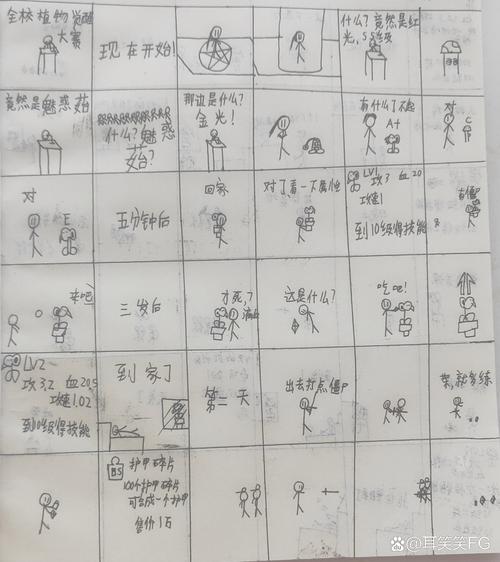 全校植物觉醒
大赛
现在开始！
什么？竟然是红
光，SS级
竟然是魅惑菇
RRRRRRRRRRR
什么？魅惑
菇？
那边是什么？
金光！
有什么了不起
A+
对
C
对
E
五分钟后
回家
对了看一下属性
LV1
攻3 血20
攻速1
到10级得技能
有僵P
来吧
三发后
才死，7
滴血
这是什么？
吃吧！
LV2
攻3.2 血20.5
攻速1.02
到10级得技能
到家了
第二天
出去打点僵P
菜，就多练
BS
护甲碎片
100个护甲碎片
可合成一个护甲
售价1万
Bai百度
@耳笑笑FG